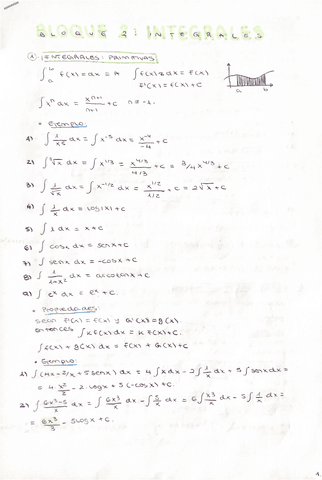 BLOQUE 2: INTEGRALES
① INTEGRALES: PRIMITIVAS
∫ₐᵇ f(x)dx = A   ∫f(x)dx = F(x)
F'(x) = f(x)+C
a b
∫xⁿ dx = xⁿ⁺¹/n+1 + C   n≠-1.
• Ejemplo:
1) ∫ 1/x⁵ dx = ∫x⁻⁵ dx = x⁻⁴/-4 + C
2) ∫ ³√x dx = ∫x^1/3 = x^4/3 / 4/3 + C = 3/4 x^4/3 + C
3) ∫ 1/√x dx = ∫x^-1/2 dx = x^1/2 / 1/2 + C = 2√x + C
4) ∫ 1/x dx = log|x| + C
5) ∫ 1 dx = x + C
6) ∫ cosx dx = senx + C
7) ∫ senx dx = -cosx + C
8) ∫ 1/1+x² dx = arcotanx + C
9) ∫ eˣ dx = eˣ + C
• Propiedades:
Sean F'(x) = f(x) y G'(x) = g(x).
Entonces ∫K f(x) dx = K F(x) + C.
∫f(x) + g(x) dx = F(x) + G(x) + C
• Ejemplo
1) ∫(4x - 2/x + 5senx) dx = 4∫x dx - 2∫ 1/x dx + 5∫senx dx =
= 4 x²/2 - 2·logx + 5(-cosx) + C.
2) ∫ 6x³-5/x dx = ∫ 6x³/x dx - ∫ 5/x dx = 6∫ x³/x dx - 5∫ 1/x dx =
= 6x³/3 - 5logx + C.
1.